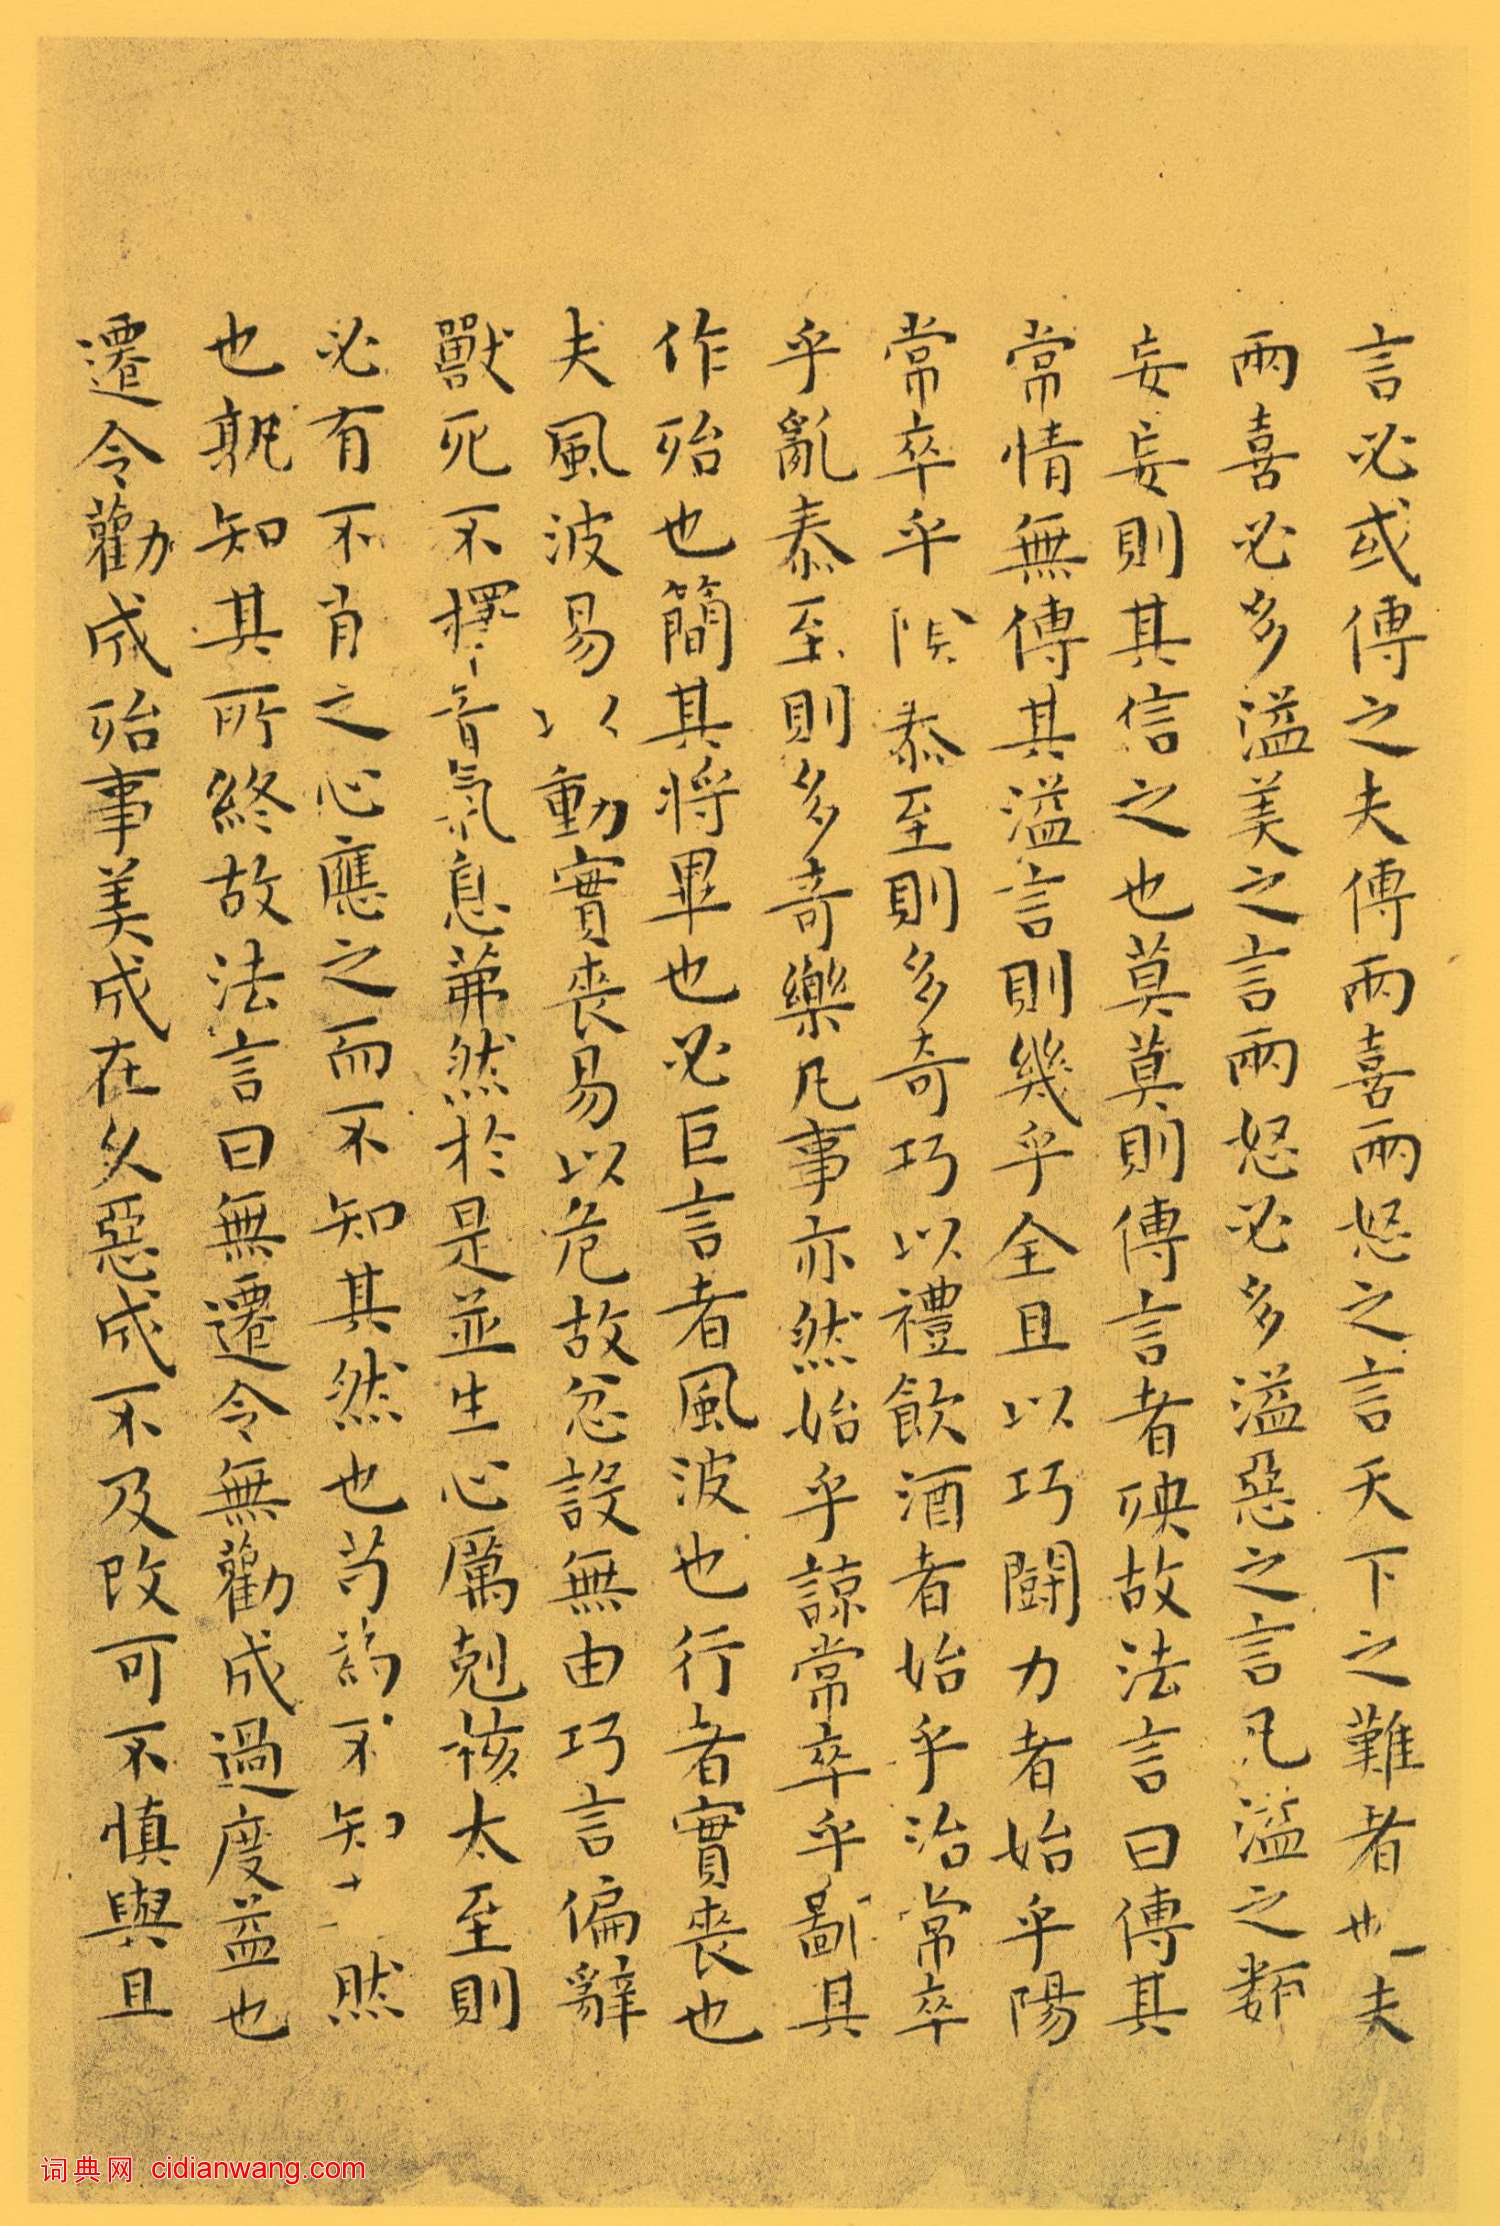 言必或傳之夫傳兩喜兩怒之言天下之難者也夫
兩喜必多溢美之言兩怒必多溢惡之言凡溢之類
妄妄則其信之也莫莫則傳言者殃故法言曰傳其
常情無傳其溢言則幾乎全且以巧鬪力者始乎陽
常卒乎陰泰至則多奇巧以禮飲酒者始乎治常卒
乎亂泰至則多奇樂凡事亦然始乎諒常卒乎鄙其
作殆也簡其將畢也必巨言者風波也行者實喪也
夫風波易以動實喪易以危故忿設無由巧言偏辭
獸死不擇音氣息茀然於是並生心厲剋核太至則
必有不肖之心應之而不知其然也苟為不知然
也孰知其所終故法言曰無遷令無勸成過度益也
遷令勸成殆事美成在久惡成不及改可不慎與且
词典网 cidianwang.com